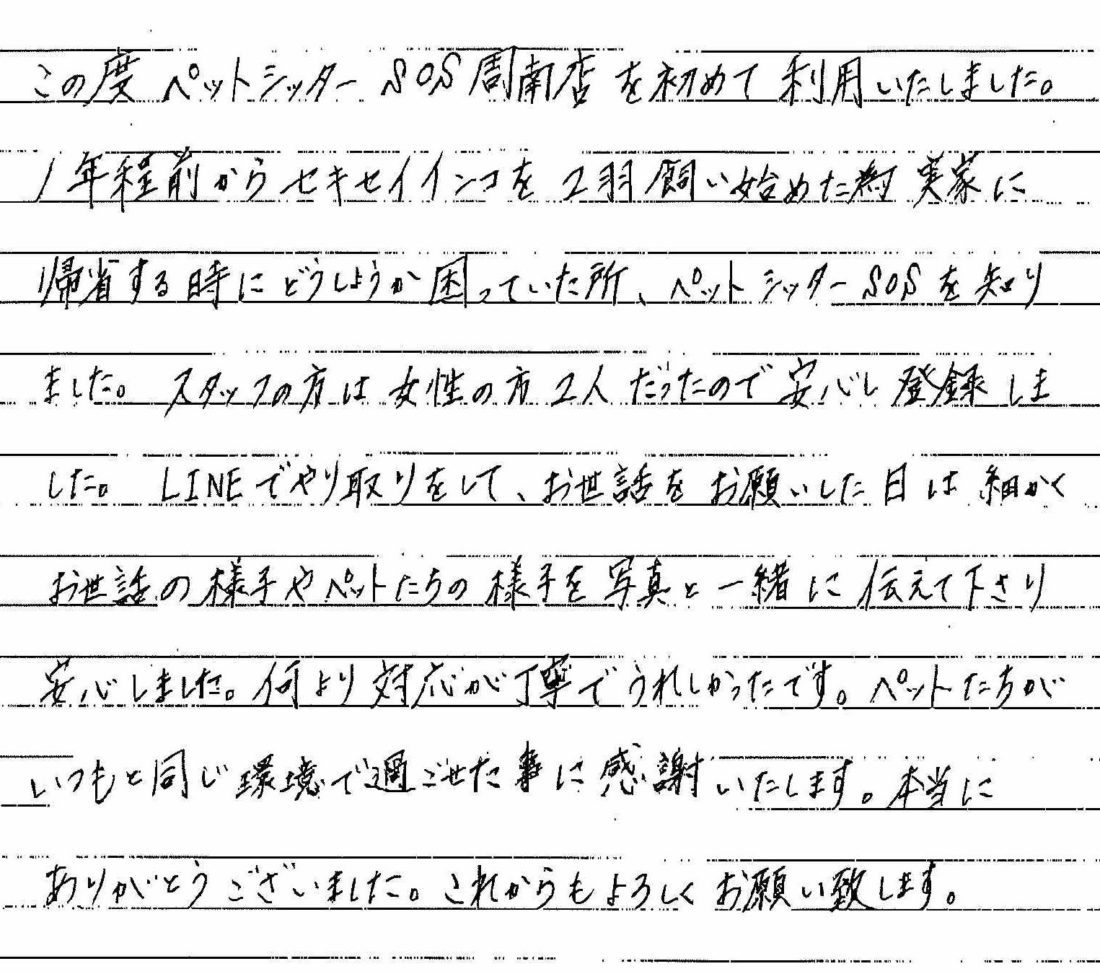 この度 ペットシッターSOS周南店を初めて利用いたしました。
1年程前からセキセイインコを2羽飼い始めた為 実家に
帰省する時にどうしようか困っていた所、ペットシッターSOSを知り
ました。スタッフの方は女性の方2人だったので安心し登録しま
した。LINEでやり取りをして、お世話をお願いした日は細かく
お世話の様子やペットたちの様子を写真と一緒に伝えて下さり
安心しました。何より対応が丁寧でうれしかったです。ペットたちが
いつもと同じ環境で過ごせた事に感謝いたします。本当に
ありがとうございました。これからもよろしくお願い致します。